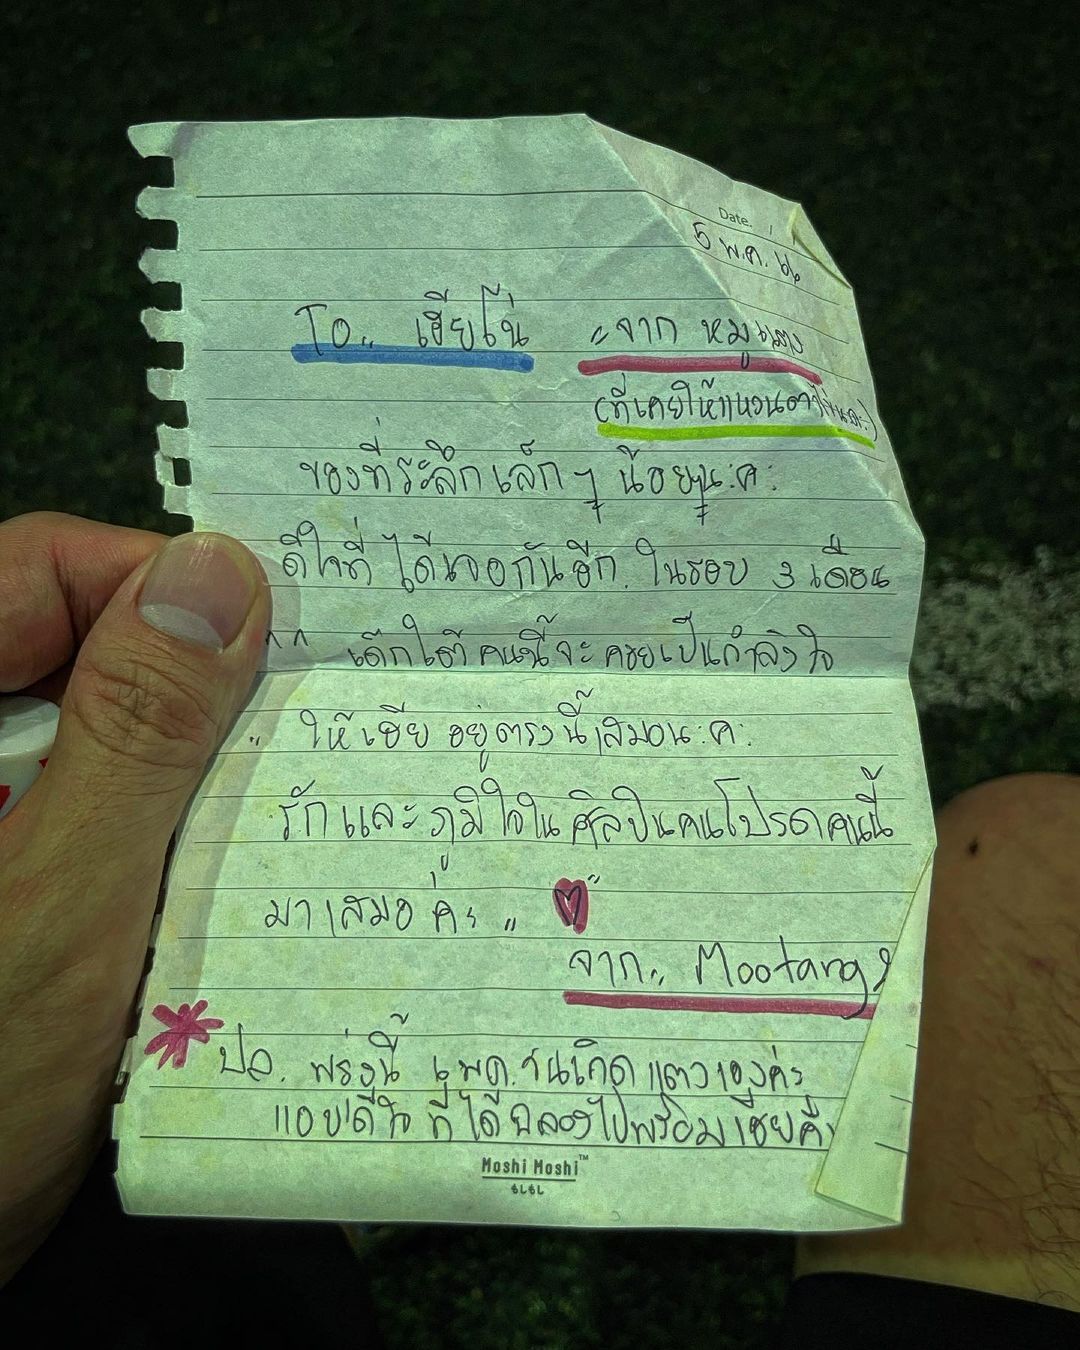 Date.
5 พ.ค. 66
To,, เฮียโน่ ,, จาก หมูแตง
(ที่เคยให้แหวนตาไก่นะคะ)
ของที่ระลึกเล็กๆ น้อยๆนะคะ
ดีใจที่ได้เจอกันอีก ในรอบ 3 เดือน
^^ เด็กใต้คนนี้จะคอยเป็นกำลังใจ
,, ให้เฮีย อยู่ตรงนี้เสมอนะคะ
รักและภูมิใจใน ศิลปินคนโปรดคนนี้
มาเสมอค่ะ ,,
จาก,, Mootang
ปล. พรุ่งนี้ 6 พ.ค. วันเกิดแตงเองค่ะ
แอบดีใจที่ได้ฉลองไปพร้อมเฮียค่ะ
Moshi Moshi™